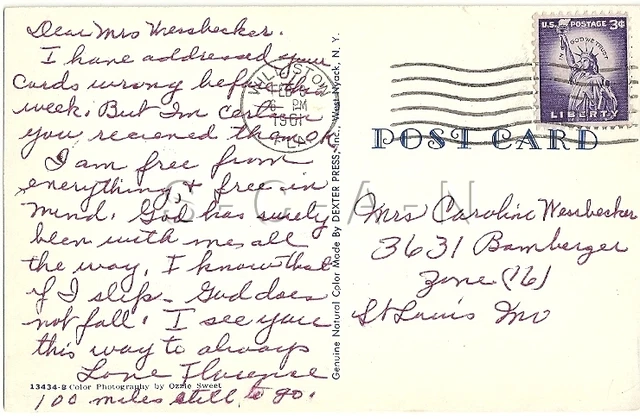 Dear Mrs Wessbecker.
I have addressed your
cards wrong before this
week. But Im certain
you recieved them OK
I am free from
everything, & free in
mind. God has surely
been with me all
the way, I know that
if I slip - God does
not fall. I see you
this way to always
Love Florence
100 miles still to go.
13434-B Color Photography by Ozzie Sweet
Genuine Natural Color Made By DEXTER PRESS, Inc., West Nyack, N. Y.
WILLISTON
FEB 8
6 PM
1961
FLA.
U.S. POSTAGE 3¢
IN GOD WE TRUST
LIBERTY
POST CARD
Mrs Caroline Wessbecker
3631 Bamberger
Zone (16)
St Louis Mo
S-C-A-N